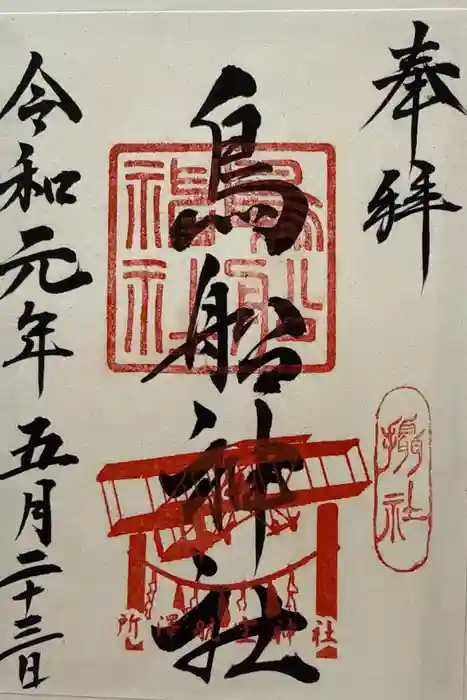 奉拝
攝社
鳥船神社
所澤航空神社
令和元年五月二十三日